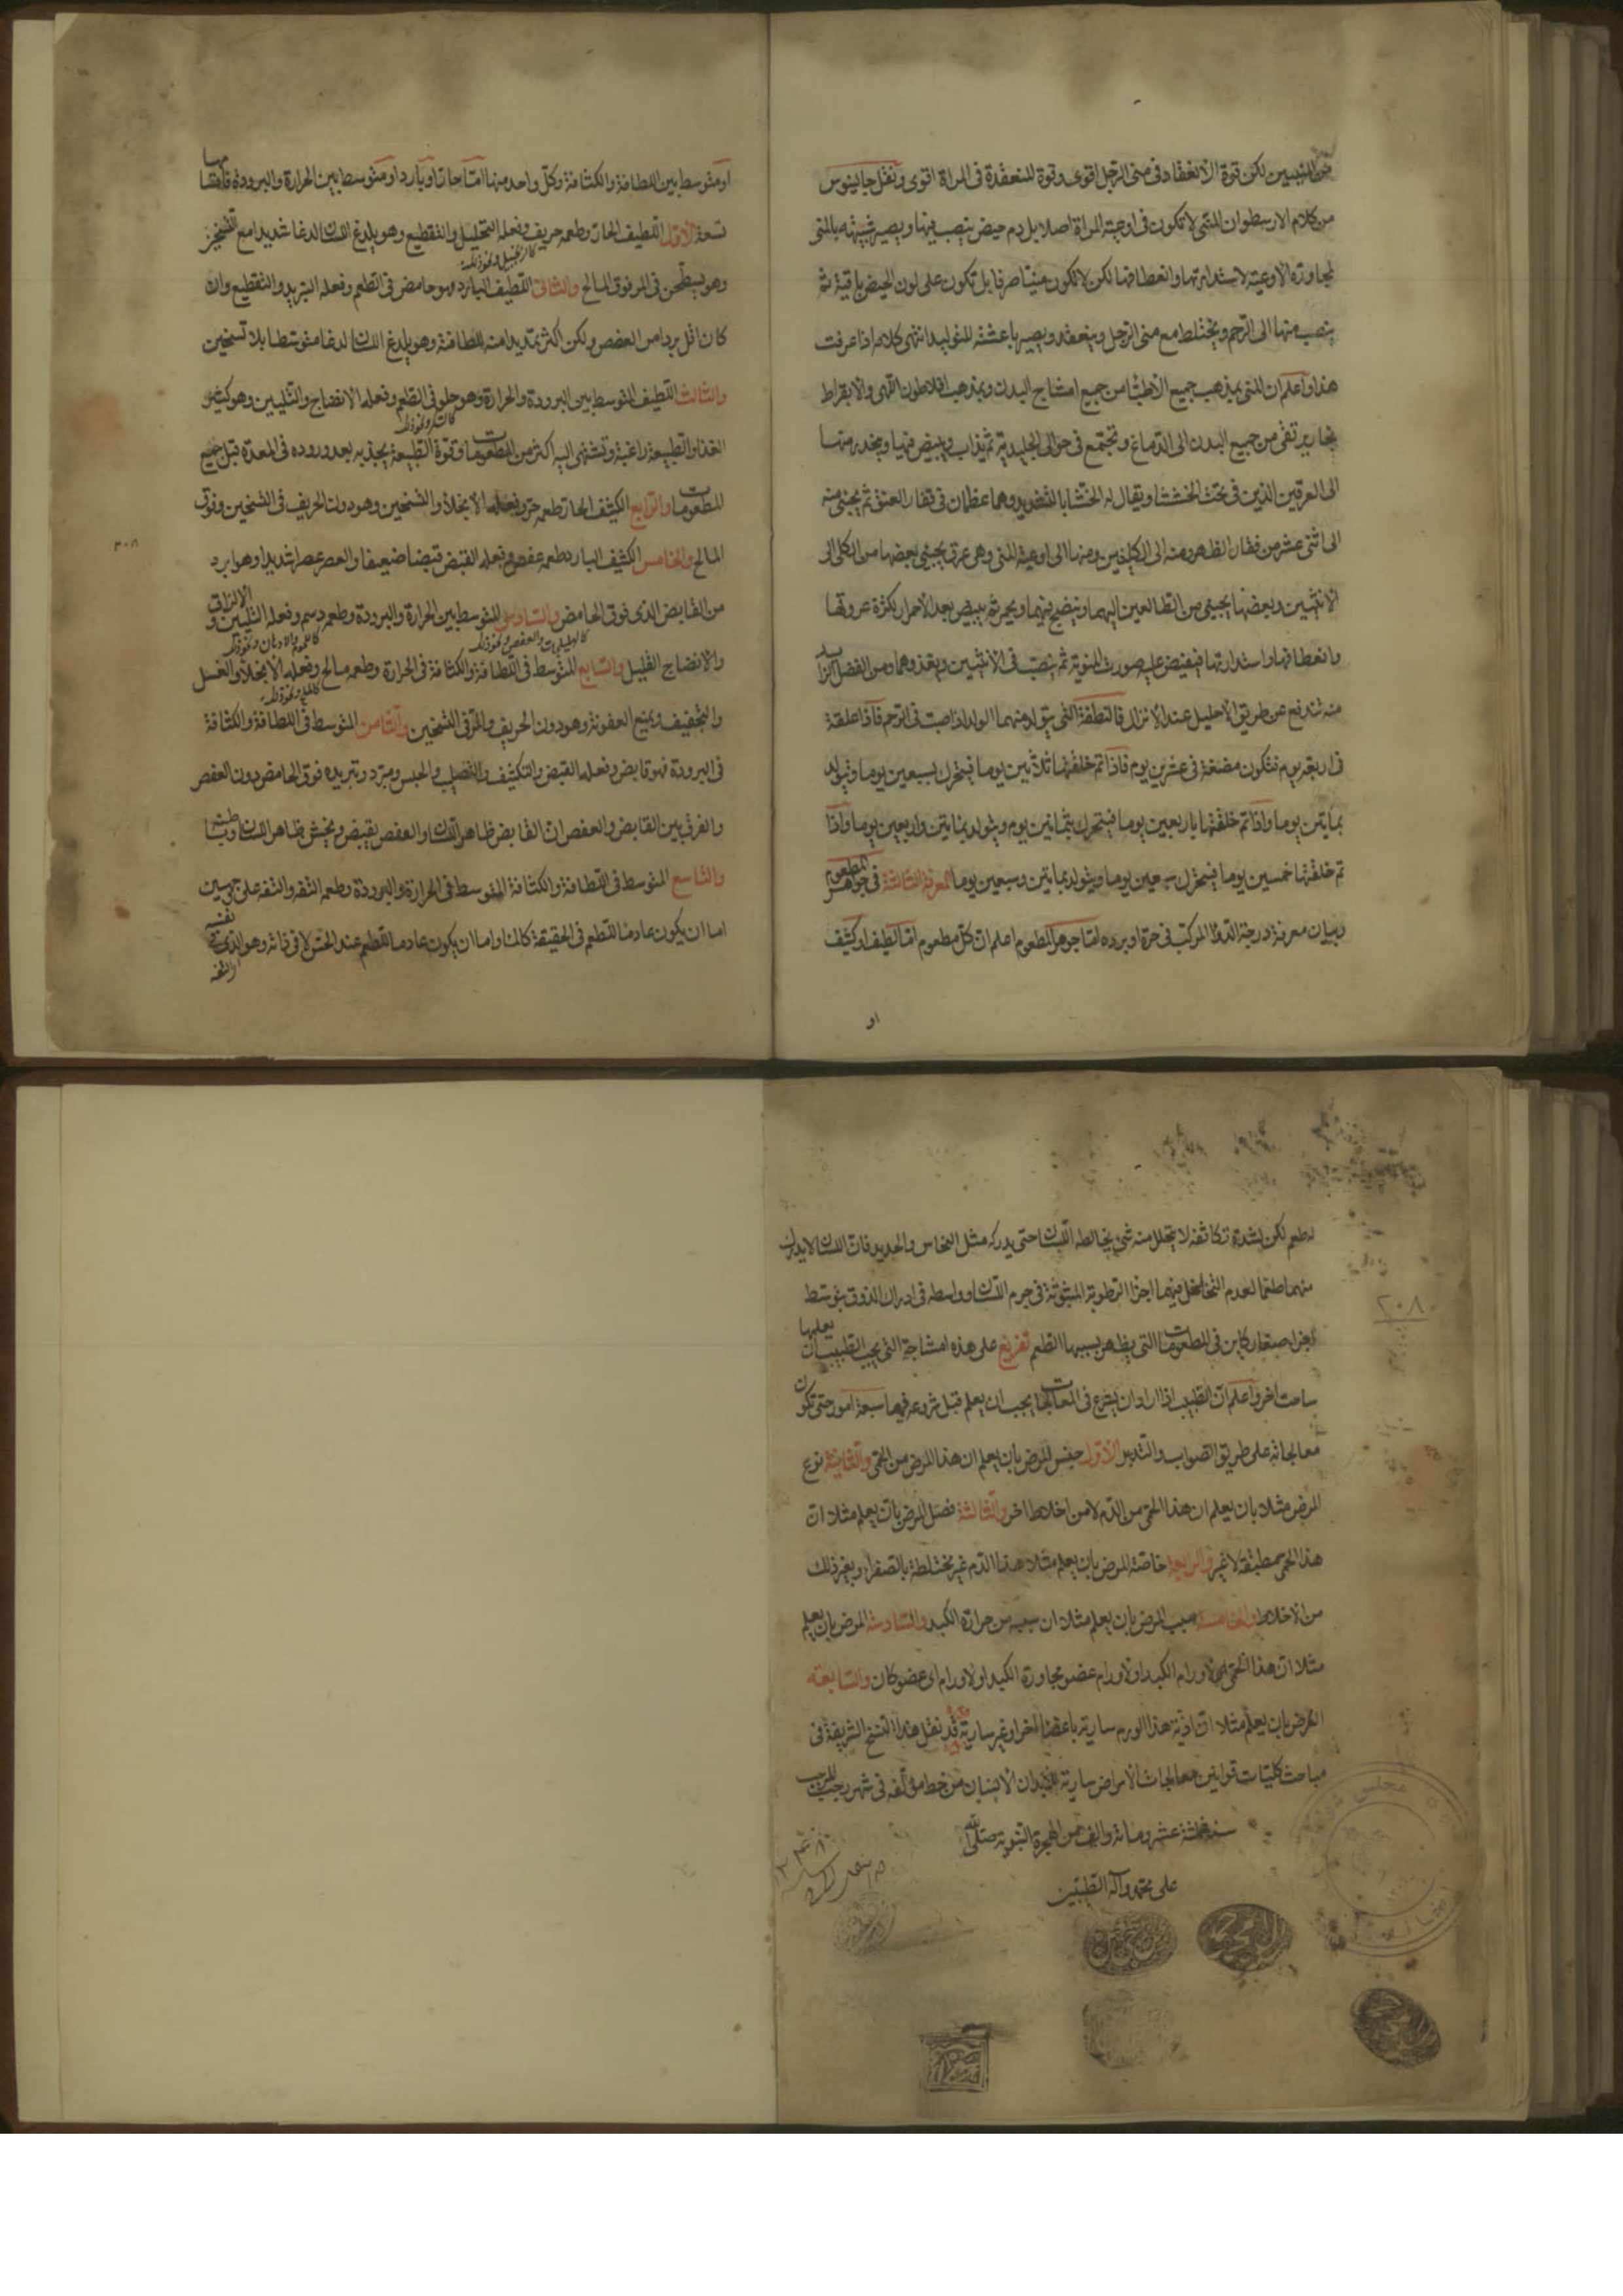 من المنيين لكن قوة الانعقاد فى منى الرجل اقوى وقوة المنعقدة فى المراة اقوى ونقل جالينوس
من كلام الارسطو ان المنى لا تكون فى اوعية المراة اصلا بل دم حيض ينصب فيها ويصير شبيهه بالمنى
لمجاورة الاوعية لاستدارتها وانعطافها لكن لا تكون منيا صرفا بل تكون على لون الحيض باقية ثم
ينصب منها الى الرحم ويختلط مع منى الرجل وينعقد ويصير باعثة للتوليد انتهى كلامه اذا عرفت
هذا واعلم ان المنى بمذهب جميع الاطبا من جميع امشاج البدن وبمذهب افلاطون الهى والابقراط
بخار يرتقى من جميع البدن الى الدماغ وتجتمع فى حوالى الجليدية ثم يذاب ويبيض فيها وينحدر منها
الى العرقين الذين فى تحت الخششا ويقال له الخششا بالتشديد وهما عظمان فى قفار العنق ثم يجئ منه
الى اثنى عشر من فقار الظهر ومنه الى الكليتين ومنها الى اوعية المنى وهى عرق يجئ بعضها من الكلى الى
الانثيين وبعضها يجئ من الطالعين اليهما وينضج فيهما ويحمر ثم يبيض بعد الاحمرار بكثرة عروقها
وانعطافها واستدارتها فيفيض عليه صورت المنوية ثم ينصب فى الانثيين ويغذوهما ومن الفضل الزايد
منه تندفع عن طريق الاحليل عند الانزال فالنطفة التى يتولد منهما الولد اذا صبت فى الرحم فاذا علقة
فى اربعة يوم فتكون مضغة فى عشرين يوم فاذا تم خلقتها ثلاثين يوما فيتحرك بسبعين يوما ويتولد
بمايتين يوما واذا تم خلقتها باربعين يوما فيتحرك بثمانين يوم ويتولد بمايتين واربعين يوما واذا
تم خلقتها خمسين يوما فيتحرك سبعين يوما ويتولد بمايتين وسبعين يوما المعرفة الثالثة فى جواهر المطعوم
وبيان معرفة درجة الدوا المركب فى حره او برده اما جوهر المطعوم اعلم ان كل مطعوم اما لطيف او كثيف
او
او متوسط بين اللطافة والكثافة وكل واحد منها اما حار او بارد او متوسط بين الحرارة والبرودة فاقسامها
تسعة الاول اللطيف الحار وطعمه حريف وفعله التحليل والتقطيع وهو يلدغ اللسان لدغا شديدا مع التسخين
كالزنجبيل ونحو ذلك
وهو يسخن فى المر فوق المالح والثانى اللطيف البارد وهو حامض فى الطعم وفعله التبريد والتقطيع وان
كان اقل بردا من العفص ولكن اكثر تمديدا منه للطافة وهو يلدغ اللسان لدغا متوسطا بلا تسخين
والثالث اللطيف المتوسط بين البرودة والحرارة وهو حلو فى الطعم وفعله الانضاج والتليين وهو كثير
كالسكر ونحو ذلك
الغذا والطبيعة راغبة وتشتهى اليه اكثر من المطعومات وقوة الطبيعة يجذبه بعد وروده فى المعدة قبل جميع
المطعومات والرابع الكثيف الحار طعمه مر وفعله الانجلاء والتسخين وهو دون الحريف فى التسخين وفوق
المالح والخامس الكثيف البارد طعمه عفص وفعله القبض قبضا ضعيفا والعصر عصرا شديدا وهو ابرد
من القابض الذى فوق الحامض والسادس المتوسط بين الحرارة والبرودة وطعمه دسم وفعله التليين والازلاق
كالهليلجات والعفص ونحو ذلك كاللحوم والادهان ونحو ذلك
والانضاج القليل والسابع المتوسط فى اللطافة والكثافة فى الحرارة وطعمه مالح وفعله الانجلاء والغسل
كالملح ونحو ذلك
والتجفيف ويمنع العفونة وهو دون الحريف والمر فى التسخين والثامن المتوسط فى اللطافة والكثافة
فى البرودة فهو قابض وفعله القبض والتكثيف والتصلب والحبس ومبرد وتبريده فوق الحامض ودون العفص
والفرق بين القابض والعفص ان القابض ظاهر اللسان والعفص يقبض ويخشن ظاهر اللسان وباطنها
والتاسع المتوسط فى اللطافة والكثافة المتوسط فى الحرارة والبرودة وطعمه التفه والتفه على وجهين
اما ان يكون عادما للطعم فى الحقيقة كالماء واما ان يكون عادما للطعم عند الحس لا فى ذاته وهو الذى فى نفسه
٣٠٨
له طعم لكن لشدة تكاثفه لا يتحلل منه شئ يخالطه اللسان حتى يدركه مثل النحاس والحديد فان اللسان لا يدرك
منهما طعما لعدم التخلخل فيهما اجزا الرطوبة المبثوثة فى جرم اللسان وواسطه فى ادراك الذوق بتوسط
اجزا صغار كاين فى المطعومات التى يظهر بسببها الطعم تفريع على هذه امشاجة التى يجب الطبيب ان يعلمها
ساحت اخر واعلم ان الطبيب اذا اراد ان يشرع فى المعالجات يجب ان يعلم قبل شروعه فيها سبعة امور حتى تكون
معالجاته على طريق الصواب والتدبر الاول جنس المرض بان يعلم ان هذا المرض من الحمى والثانية نوع
المرض مثلا بان يعلم ان هذا الحمى من الدم لا من اخلاط اخر والثالثة فصل المرض بان يعلم مثلا ان
هذا الحمى مطبقة لا غير والرابعة خاصة المرض بان يعلم مثلا هذا الدم غير مختلطة بالصفرا وبغير ذلك
من الاخلاط والخامسة سبب المرض بان يعلم مثلا ان سببه من حرارة الكبد والسادسة المرض بان يعلم
مثلا ان هذا الحمى لاورام الكبد او لاورام عضو مجاورة الكبد او لاورام اى عضو كان والسابعة
العرض بان يعلم مثلا ان اذية هذا الورم سارية باعضا اخر او غير سارية قد نقل هذا النسخ الشريفة فى
مباحث كليات قوانين معالجات الامراض سارية لابدان الانسان من خط مؤلفه فى شهر رجب المرجب
سنه عشر ومائة والف من الهجرة النبوية صلى الله
على محمد وآله الطيبين
٢٠٨